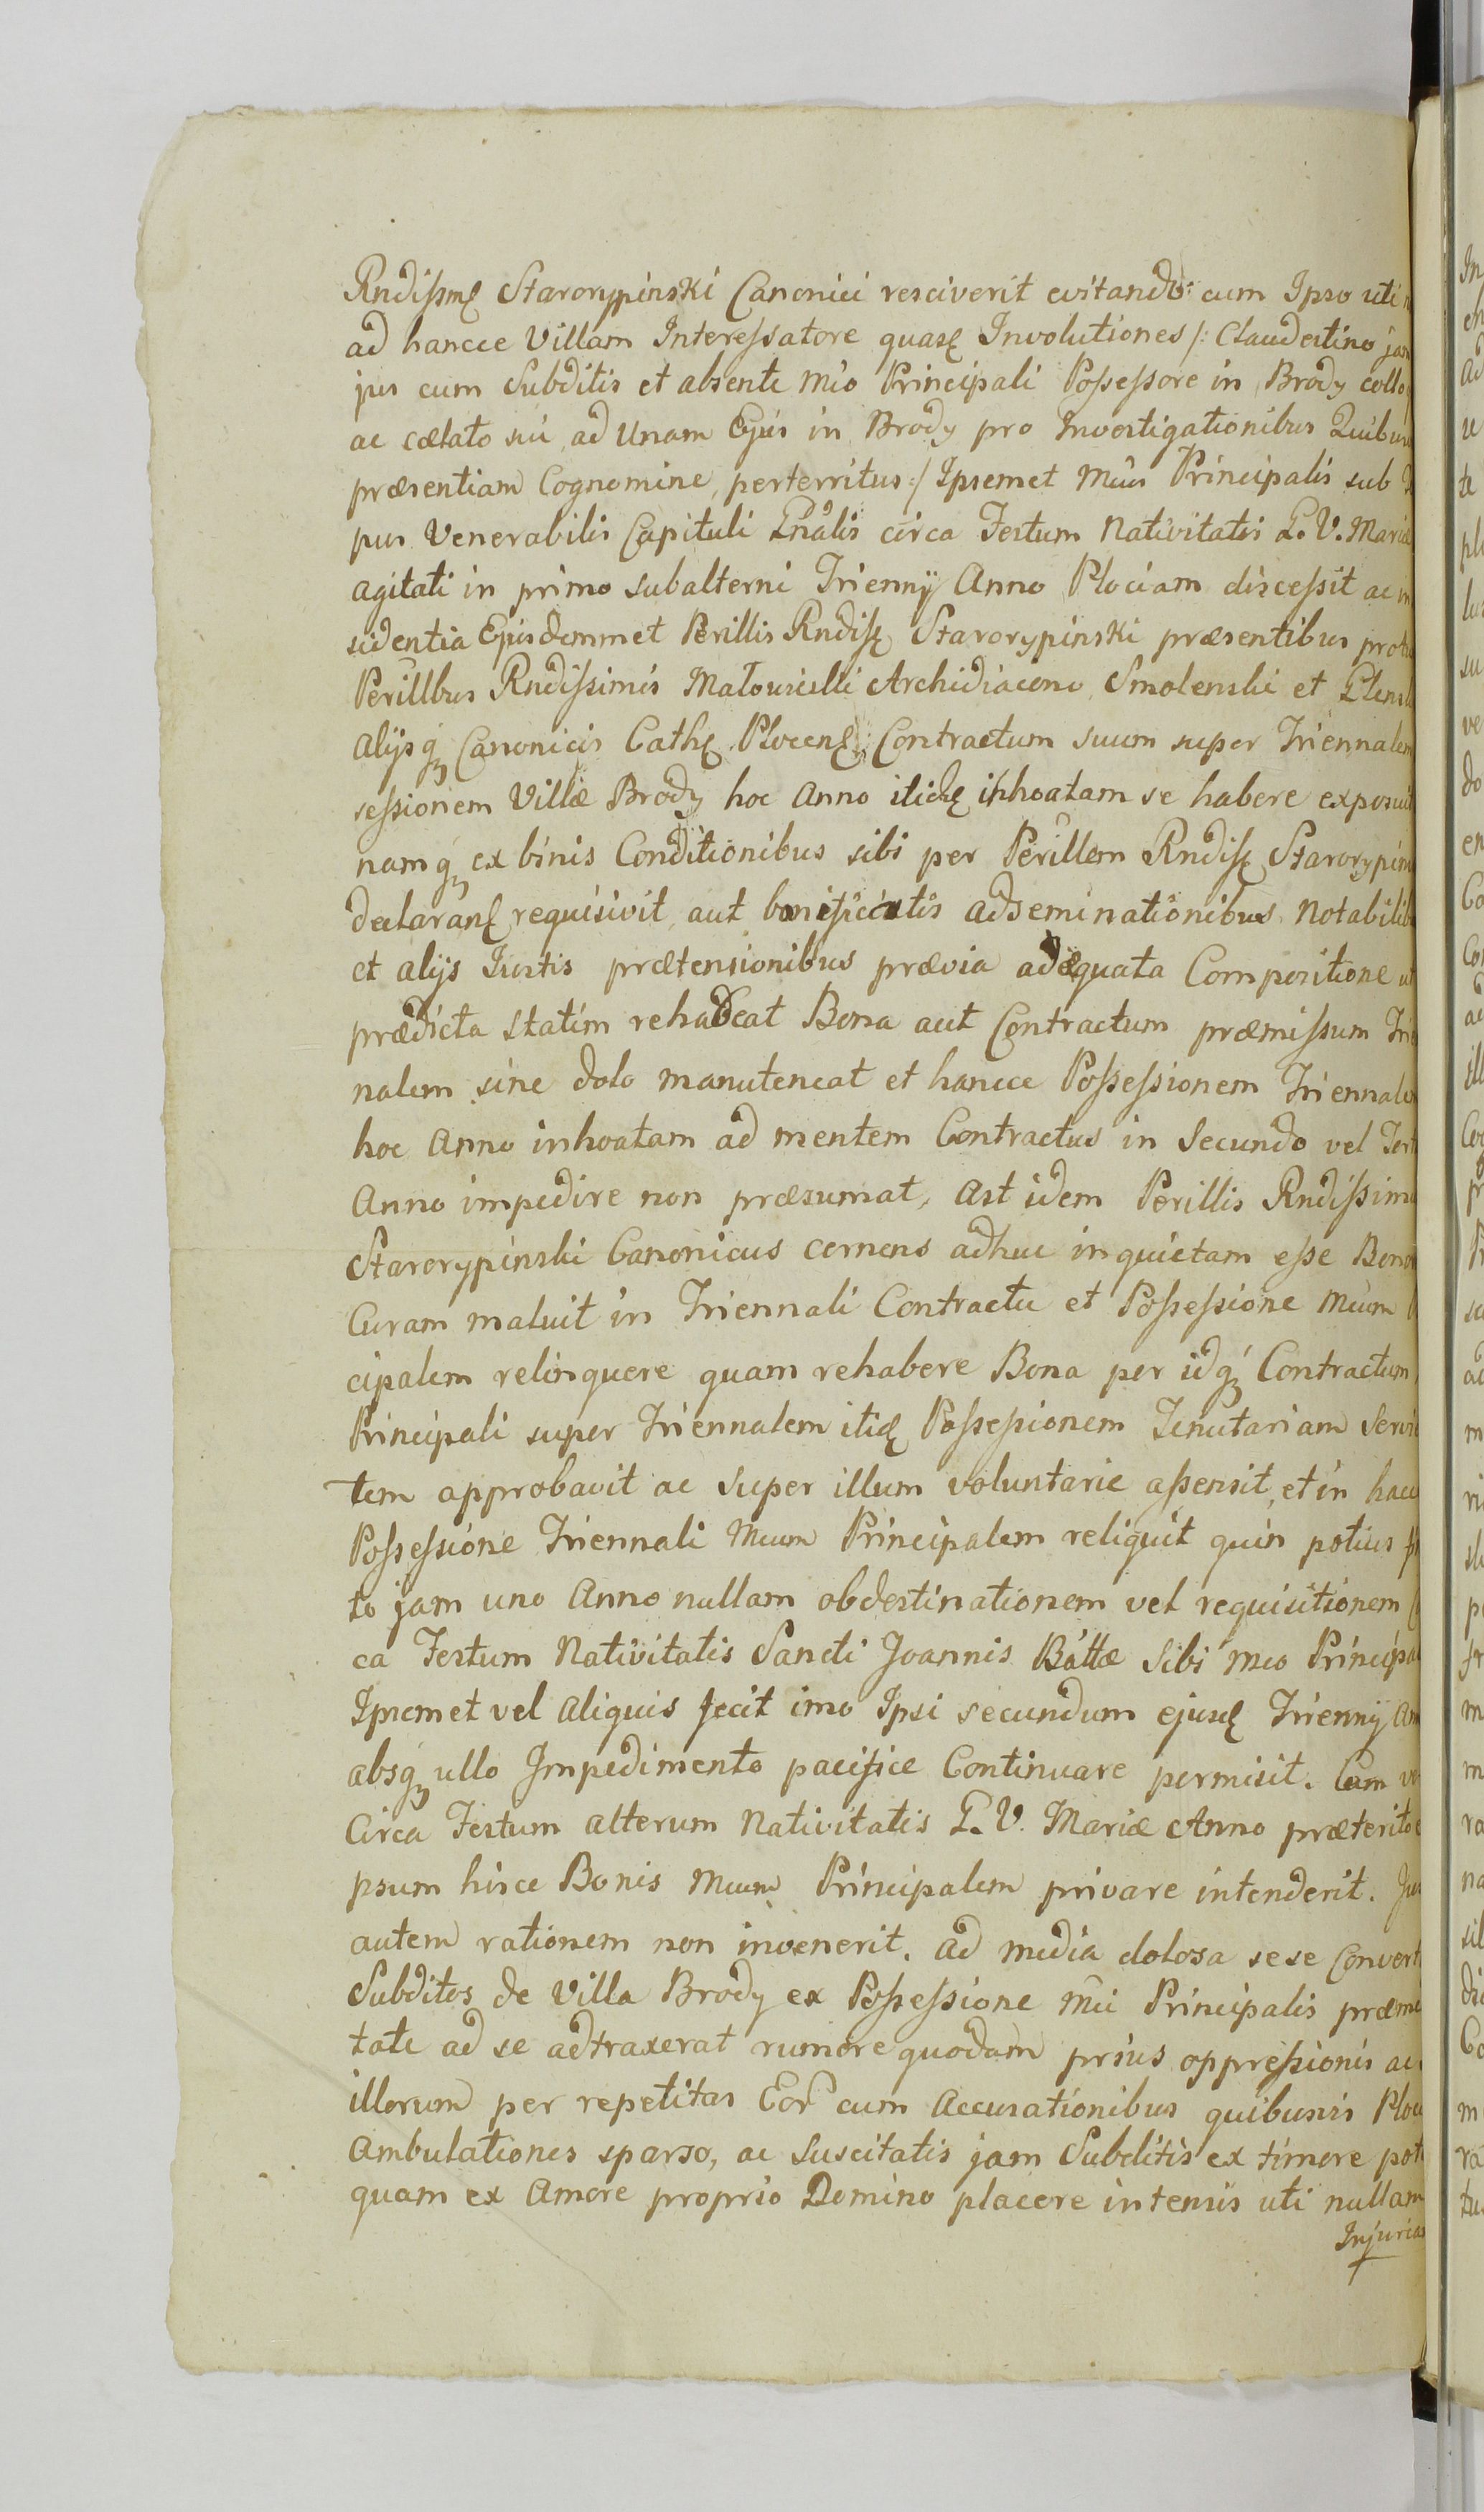 Rndissmę Starorypinski Canonici resciverit evitando: cum Ipso uti
ad hancce Villam Interessatore quasę Involutiones /: Claudestino
jus cum Subditis et absente Mėo Principali Possessore in Brody collo
ac cœlato sui ad Unam Ejus in Brody pro Investigationibus Quibus
præsentiam Cognomine, perterritus :/ Ipsemet Meus Principalis sub
pus Venerabilis Capituli Gnalis circa Festum Nativitatis B. V. Mariæ
agitati in primo subalterni Trienny Anno Plociam discessit ac in
sidentia Ejusdemmet Perillis Rndisę Starorypinski præsentibus
Perillbus Rndissimis Malowieski Archidiacono Smolenski et
alijsq́ Canonicis Cathę Plocenę Contractum suum super Triennalem
sessionem Villæ Brody hoc Anno itidę inhoatam se habere exposuit
namq́ ex binis Conditionibus sibi per Perillem Rndisę Starorypin
declaranę requisivit aut bonificatis adseminationibus Notabilib
et alijs Justis prætensionibus prævia adæquata Compositione ut
prædicta statim rehabeat Bona aut Contractum præmissum Tri
nalem sine dolo manuteneat et hancce Possessionem Triennalem
hoc Anno inhoatam ad mentem Contractus in Secundo vel Tert
Anno impedire non præsumat, Ast idem Perillis Rndissimus
Starorypinski Canonicus cernens adhuc inquietam esse Bonor
Curam maluit in Triennali Contractu et Possessione Meum
cipalem relinquere quam rehabere Bona per idq́ Contractum
Principali super Triennalem itidę Possessionem Tenutariam Servi
tem approbavit ac super illum voluntarie assensit, et in hac
Possessione Triennali Meum Principalem reliquit quin potius
to jam uno Anno nullam obdestinationem vel requisitionem
ca Festum Nativitatis Sancti Joannis Battæ Sibi Meo Principa
Ipsemet vel Aliquis fecit imo Ipsi secundum ejusę Trienny An
absq́ ullo Impedimento pacifice Continuare permisit. Cum
Circa Festum alterum Nativitatis B. V. Mariæ Anno præterito
psum hisce Bonis Meum Principalem privare intenderit.
autem rationem non invenerit. Ad media dolosa sese Convert
Subditos de Villa Brody ex Possessione Mei Principalis
tate ad se adtraxerat rumore quodam prius oppressionis ac
illorum per repetitas Eor̃ cum Accusationibus quibusvis Ploc
Ambulationes sparso, ac Suscitatis jam Subditis ex timore pot
quam ex Amore proprio Domino placere intensis uti nullam
Injurias